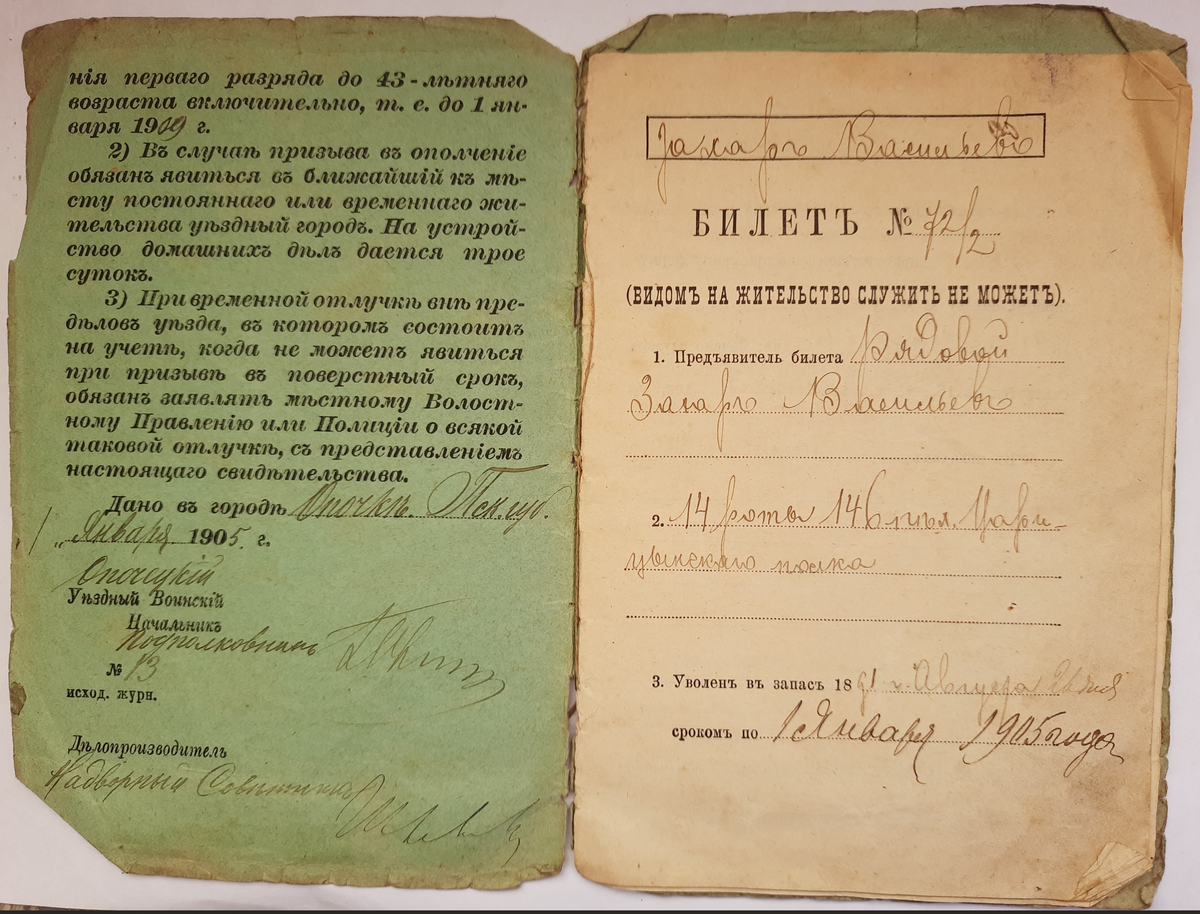 нія перваго разряда до 43-лѣтняго
возраста включительно, т. е. до 1 ян-
варя 1909 г.
2) Въ случаѣ призыва въ ополченіе
обязанъ явиться въ ближайшій къ мѣ-
сту постояннаго или временнаго жи-
тельства уѣздный городъ. На устрой-
ство домашнихъ дѣлъ дается трое
сутокъ.
3) При временной отлучкѣ внѣ пре-
дѣловъ уѣзда, въ которомъ состоитъ
на учетѣ, когда не можетъ явиться
при призывѣ въ поверстный срокъ,
обязанъ заявлять мѣстному Волост-
ному Правленію или Полиціи о всякой
таковой отлучкѣ, съ представленіемъ
настоящаго свидѣтельства.
Дано въ городѣ Опочкѣ Пск. губ.
1 „ Января 1905 г.
Опочецкій
Уѣздный Воинскій
Начальникъ
Подполковникъ
№ 13
исход. журн.
Дѣлопроизводитель
Надворный Совѣтникъ
Захаръ Васильевъ
БИЛЕТЪ № 72/2
(ВИДОМЪ НА ЖИТЕЛЬСТВО СЛУЖИТЬ НЕ МОЖЕТЪ).
1. Предъявитель билета Рядовой
Захаръ Васильевъ
2. 14 роты 146 пѣх. Цари-
цынскаго полка
3. Уволенъ въ запасъ 1891 г. Августа
срокомъ по 1 Января 1905 года